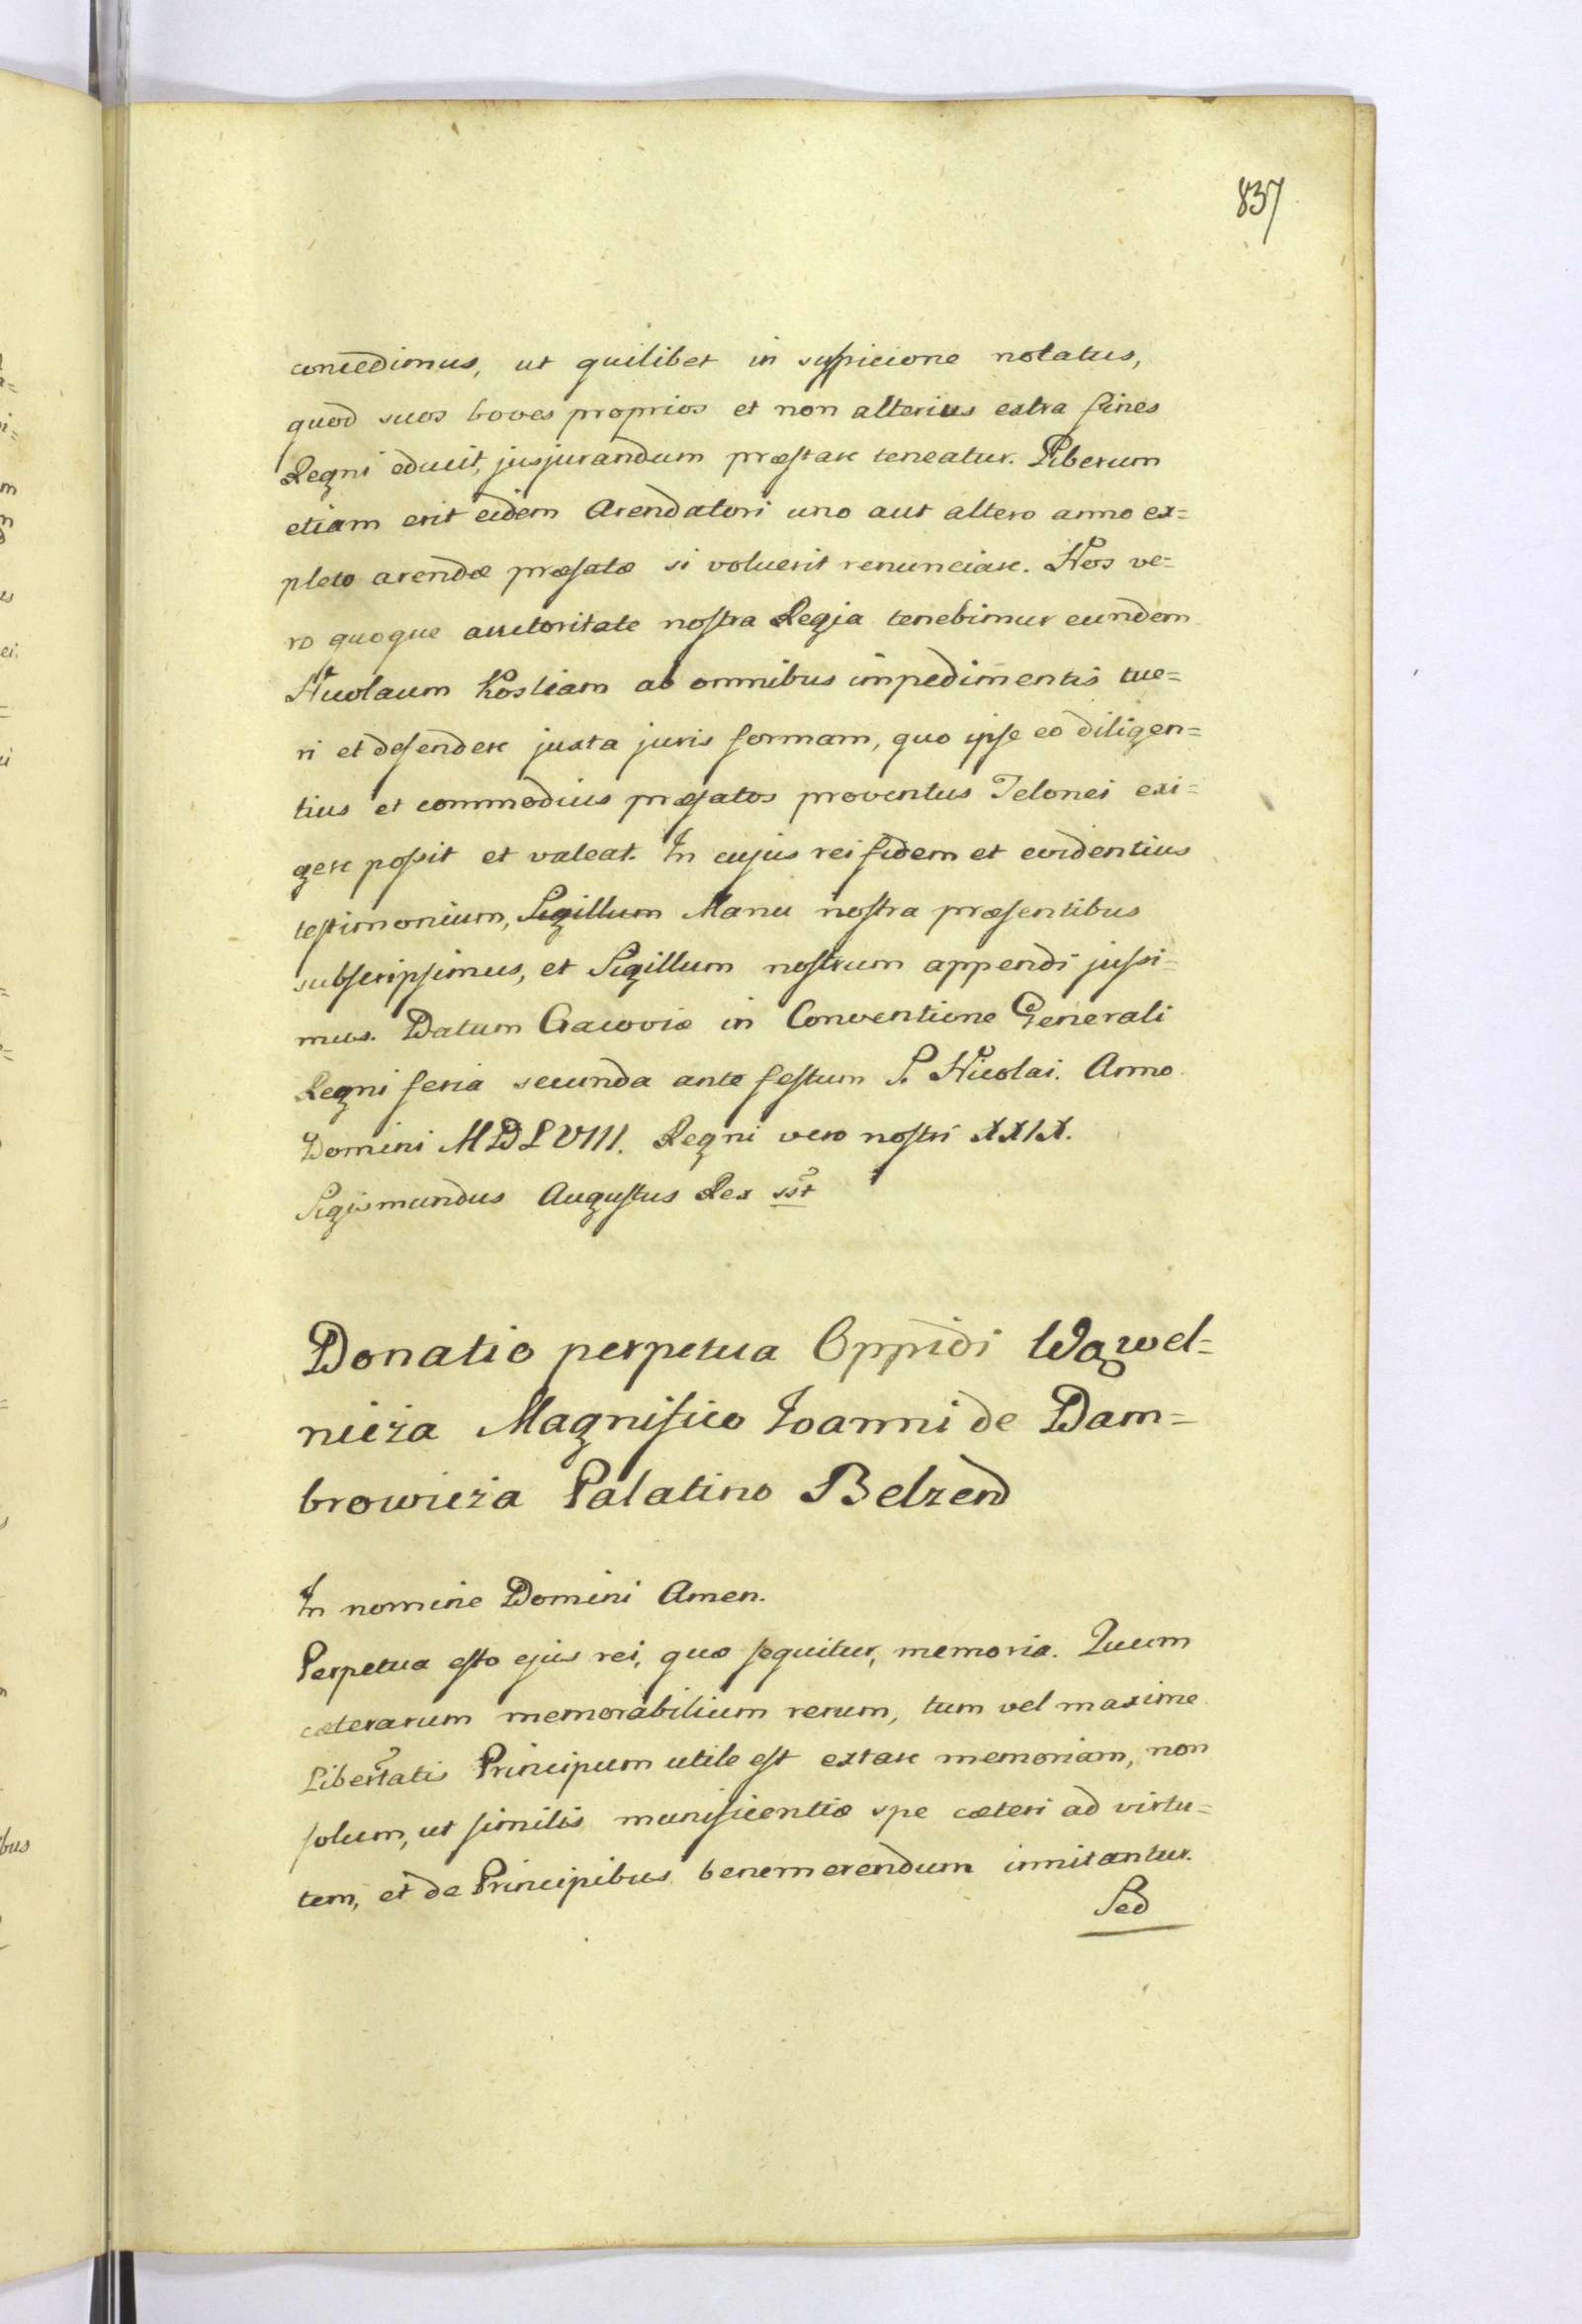 837
concedimus, ut quilibet in suspicione notatus,
quod suos boves proprios et non alterius extra fines
Regni educit, jusjurandum præstare teneatur. Liberum
etiam erit eidem Arendatori uno aut altero anno ex=
pleto arendæ præfatæ si voluerit renunciare. Nos ve=
ro quoque auctoritate nostra Regia tenebimur eundem
Nicolaum Kostiam ab omnibus impedimentis tue=
ri et defendere juxta juris formam, quo ipse eo diligen=
tius et commodius præfatos proventus Telonei exi=
gere possit et valeat. In cujus rei fidem et evidentius
testimonium, Sigillum Manu nostra præsentibus
subscripsimus, et Sigillum nostrum appendi jussi=
mus. Datum Cracoviæ in Conventione Generali
Regni feria secunda ante festum S. Nicolai. Anno
Domini MDLVIII. Regni vero nostri XXIX.
Sigismundus Augustus Rex sst
Donatio perpetua Oppidi Wąwel=
nicza Magnifico Joanni de Dam=
browicza Palatino Belzen
In nomine Domini Amen.
Perpetua esto ejus rei, quæ sequitur, memoria. Quum
cæterarum memorabilium rerum, tum vel maxime
Libertatis Principum utile est extare memoriam, non
solum, ut similis munificentiæ spe cæteri ad virtu=
tem, et de Principibus benemerendum innitantur.
Sed
ei.
bus